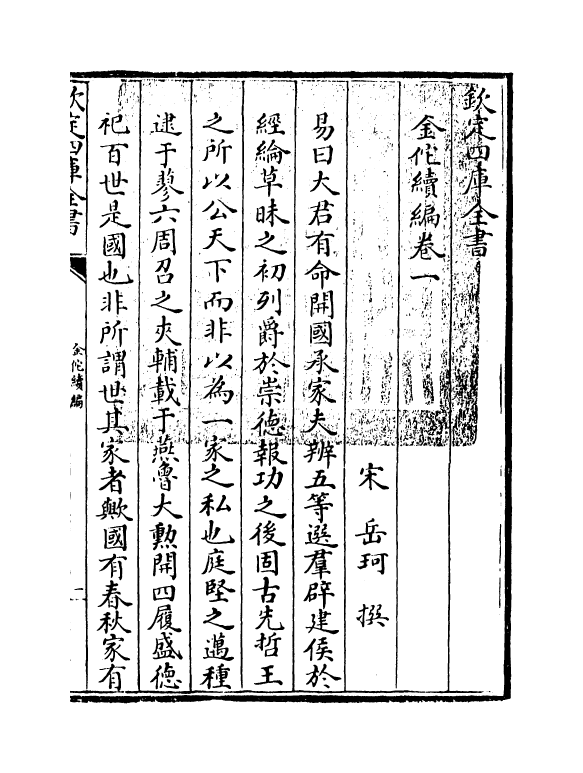 欽定四庫全書
金佗續編卷一
宋 岳珂 撰
易曰大君有命開國承家夫辨五等選羣辟建侯於
經綸草昧之初列爵於崇德報功之後固古先哲王
之所以公天下而非以為一家之私也庭堅之邁種
逮于蓼六周召之夾輔載于燕魯大勲開四履盛德
祀百世是國也非所謂世其家者歟國有春秋家有
欽定四庫全書
金佗續編
一